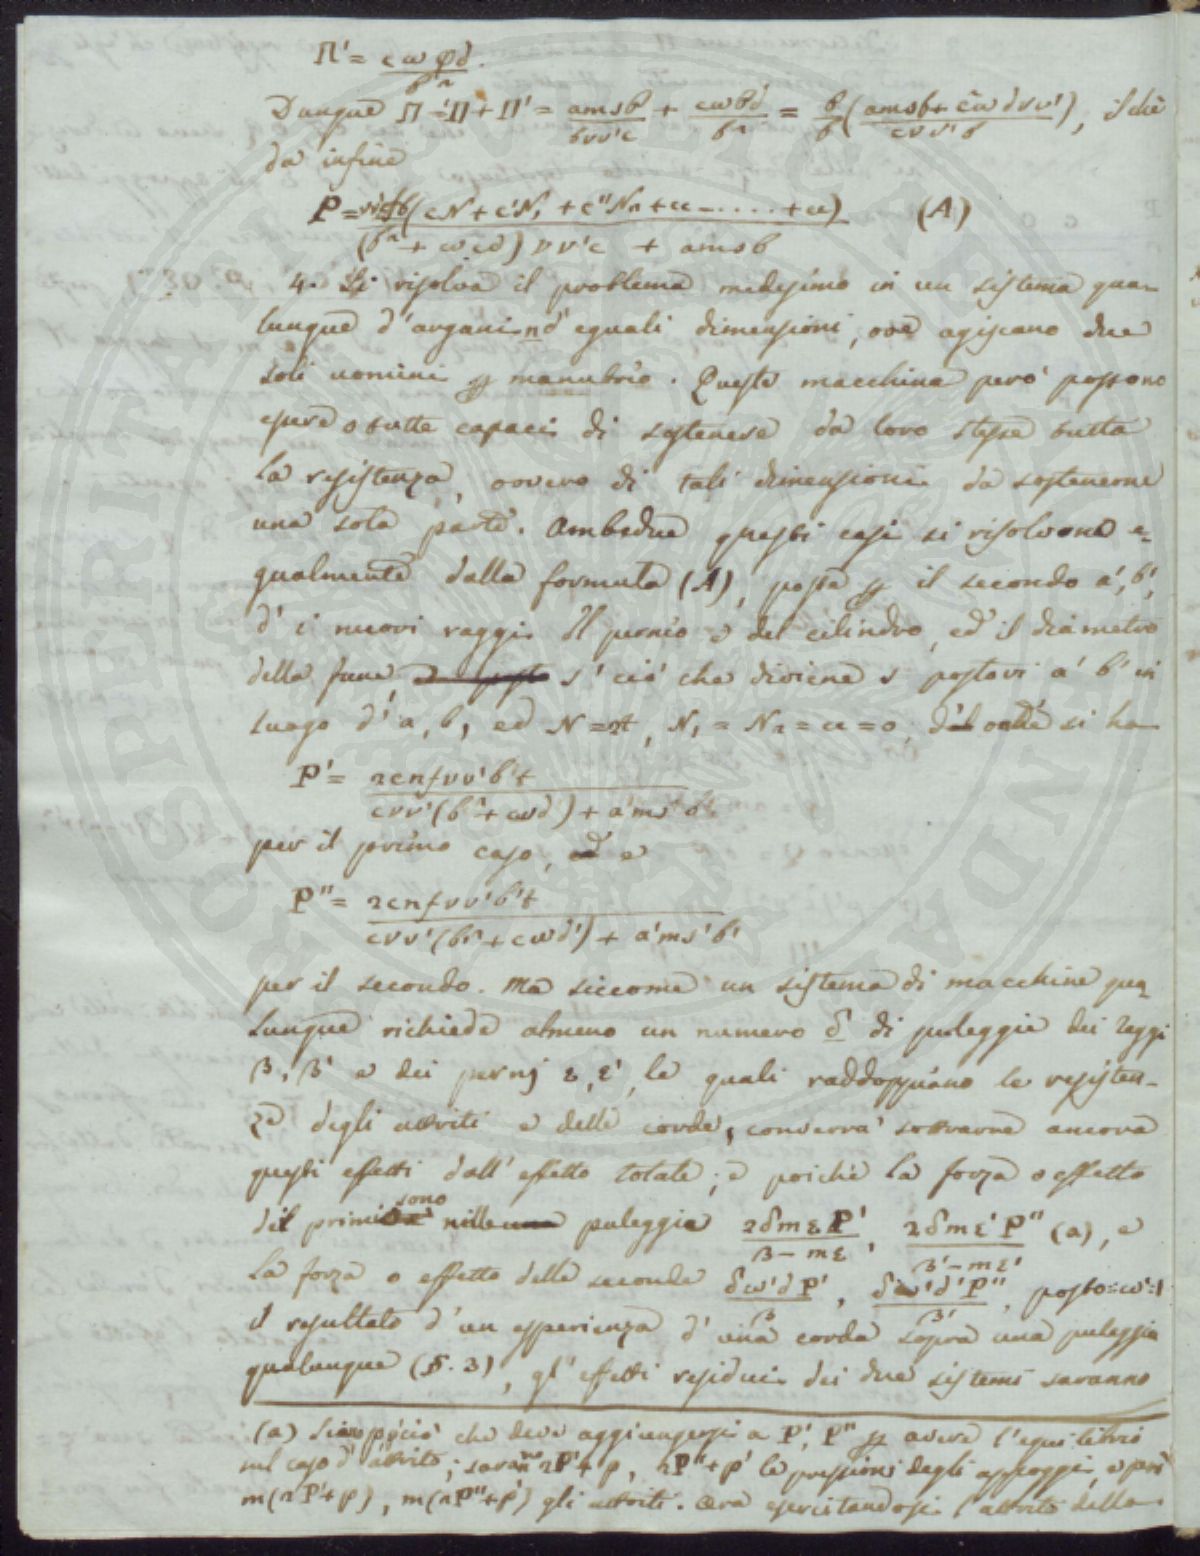 Π' = cωφd / b².
Dunque Π = 'Π + Π' = amsb / bvv'c + cωbd / b² = b/b (amsb + cωdvv' / cvv'b), il che
da infine
P = vv'fb(cN + c'N, + c''N₂ + &c - .... + &c) / (b² + ωcd) vv'c + amsb (A)
4. Si risolva il problema medesimo in un sistema qua-
lunque d'argani n d'eguali dimensioni, ove agiscano due
soli uomini per manubrio. Queste macchine però possono
essere o tutte capaci di sostenere da loro stesse tutta
la resistenza, ovvero di tali dimensioni da sostenerne
una sola parte. Ambedue questi casi si risolvono e-
gualmente dalla formula (A), posta per il secondo a', b',
d' i nuovi raggi del pernio e del cilindro, ed il diametro
della fune s' ciò che diviene s postovi a' b' in
luogo d'a, b, ed N = 2t, N₁ = N₂ = &c = 0, d'onde si ha
P' = 2cnfvv'b't / cvv'(b² + cωd) + a'ms'b'
per il primo caso, e
P'' = 2cnfvv'b't / cvv'(b² + cωd') + a'ms'b'
per il secondo. Ma siccome un sistema di macchine qua-
lunque richiede almeno un numero δ di puleggie dei raggi
β, β' e dei pernj ε, ε', le quali raddoppiano le resisten-
ze degli attriti e delle corde, converrà sottrarne ancora
questi effetti dall'effetto totale; e poichè la forza o effetto
dei primi sono nelle puleggie 2δmεP' / β - mε, 2δmε'P'' / β' - mε' (a), e
la forza o effetto delle seconde δω'dP' / β, δω'd'P'' / β', posto = ω' =
il resultato d'un esperienza d'una corda sopra una puleggia
qualunque (§. 3), gl'effetti residui dei due sistemi saranno
(a) Siano p, p' ciò che deve aggiungersi a P', P'' per avere l'equilibrio
nel caso d'attrito; saranno 2P' + p, 2P'' + p' le pressioni degli appoggi, e però
m(2P' + p), m(2P'' + p') gli attriti. Ora esercitandosi l'attrito della